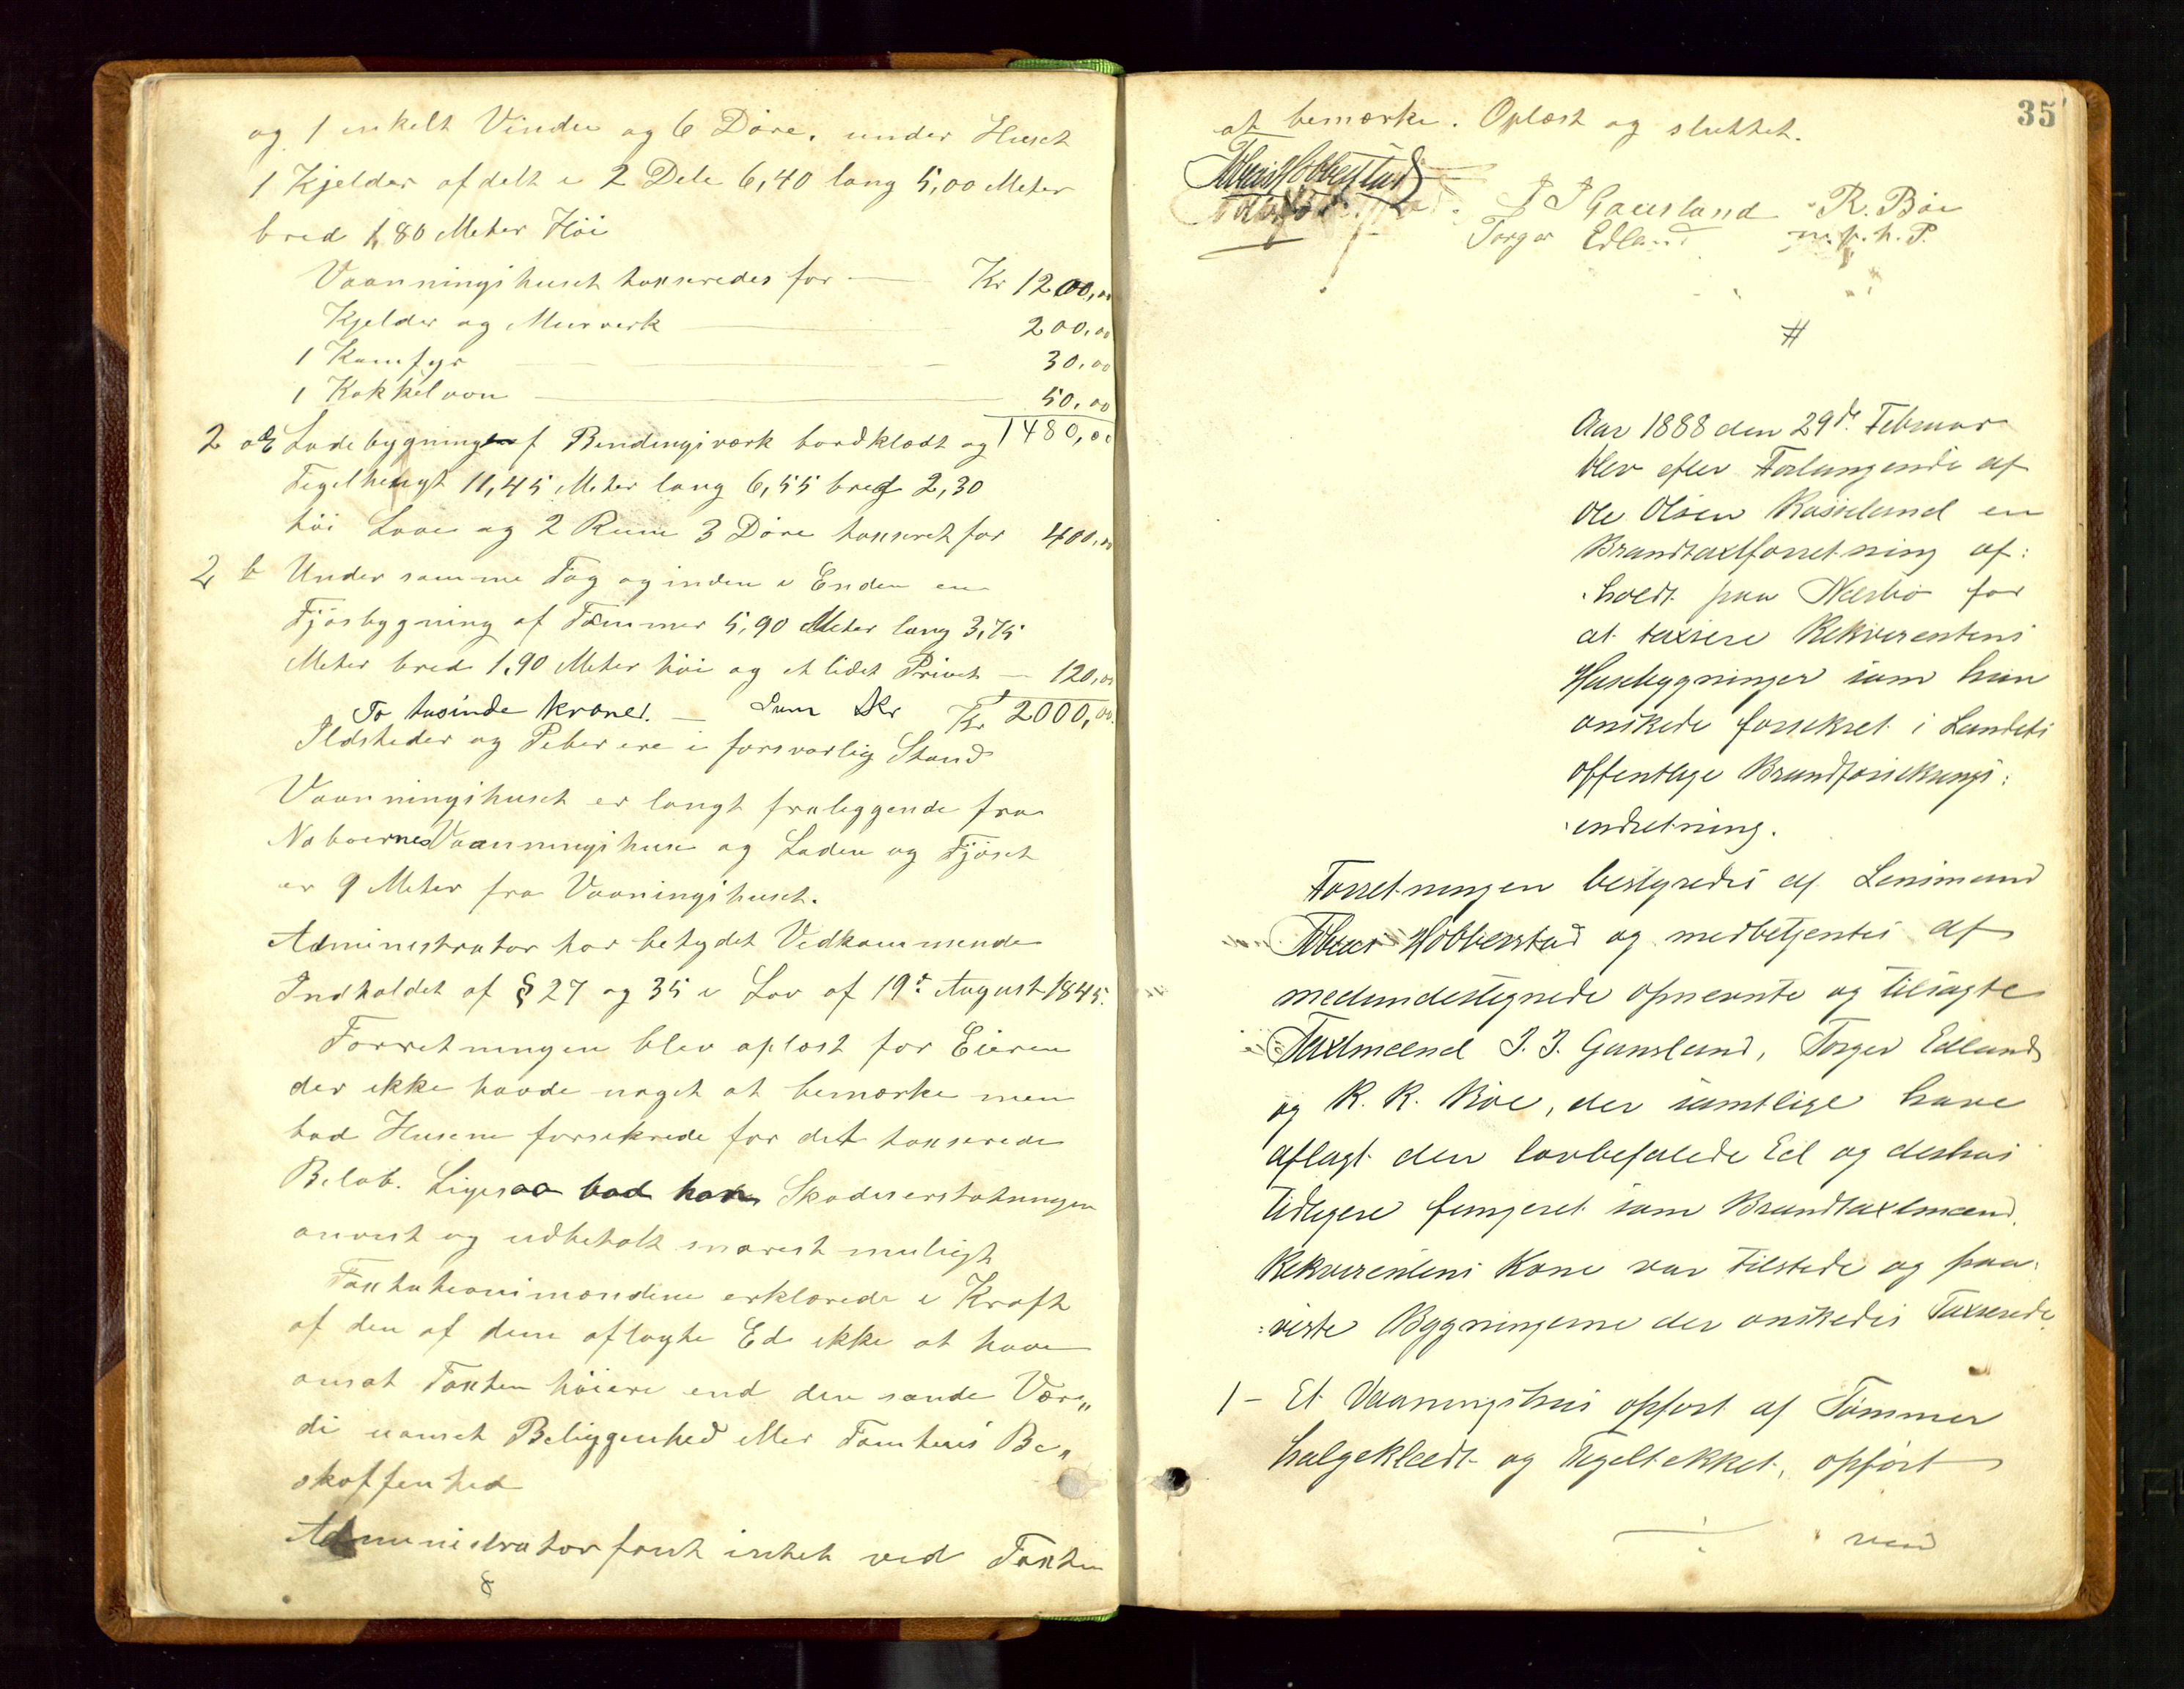 og 1 enkelt Vindu og 6 Döre. under Huset
1 Kjelder afdelt i 2 Dele 6,40 lang 5,00 Meter
bred 1,80 Meter Höi
Vaanningshuset taxseredes for — Kr 1200,00
Kjelder og Murverk — 200,00
1 Kamfyr — 30,00
1 Kakkelovn — 50,00
1480,00
2 a Ladebygning af Bindingsværk bordklædt og
Tegelhengt 11,45 Meter lang 6,55 bred 2,30
höi Lave og 2 Rum 3 Döre taxseret for 400,00
2 b Under samme Tag og inden i Enden en
Fjösbygning af Tømmer 5,90 Meter lang 3,75
Meter bred 1,90 Meter höi og et lidet Privet — 120,00
To tusinde kroner. — Sum Kr Kr 2000,00
Ildsteder og Piber ere i forsvarlig Stand
Vaanningshuset er langt fraliggende fra
Naboernes Vaanningshuse og Laden og Fjöset
er 9 Meter fra Vaaningshuset.
Administrator har betydet Vedkommende
Indholdet af § 27 og 35 i Lov af 19de August 1845.
Forretningen blev oplæst for Eieren
der ikke havde noget at bemærke men
bad Husene forsekrede for det taxserede
Beløb. Ligesaa bad han Skadeserstatningen
anvist og udbetalt snarest muligt
Taxtationsmændene erklærede i Kraft
af den af dem aflagte Ed ikke at have
ansat Taxten höiere end den sande Vær„
di uanset Beliggenhed eller Tomtens Be„
skaffenhed
Administrator fant intet ved Taxten
8
35
at bemærke. Oplæst og sluttet.
Tobias Hobberstad
J J Gausland R. Böe
Torger Edland m. p. h. P.
#
Aar 1888 den 29de Februar
blev efter Forlangende af
Ole Olsen Rasseland en
Brandtaxtforretning af:
:holdt paa Nesbö for
at taxsere Rekvirentens
Husebygninger som han
ønskede forsekret i Landets
offentlige Brandforsekrings:
:indretning.
Forretningen bestyredes af Lensmand
Tobias Hobberstad og medbetjentes af
medundertegnede opnevnte og tilsagte
Taxtmænd J. J. Gausland, Torger Edland
og R. R. Böe, der samtlige have
aflagt den lovbefalede Ed og deshos
tidligere fungeret som Brandtaxtmænd.
Rekvirentens Kone var tilstede og paa:
:viste Bygningerne der ønskedes Taxserede.
1 – Et Vaaningshus opført af Tömmer
halgeklædt og Tegeltekket, opfört
vend